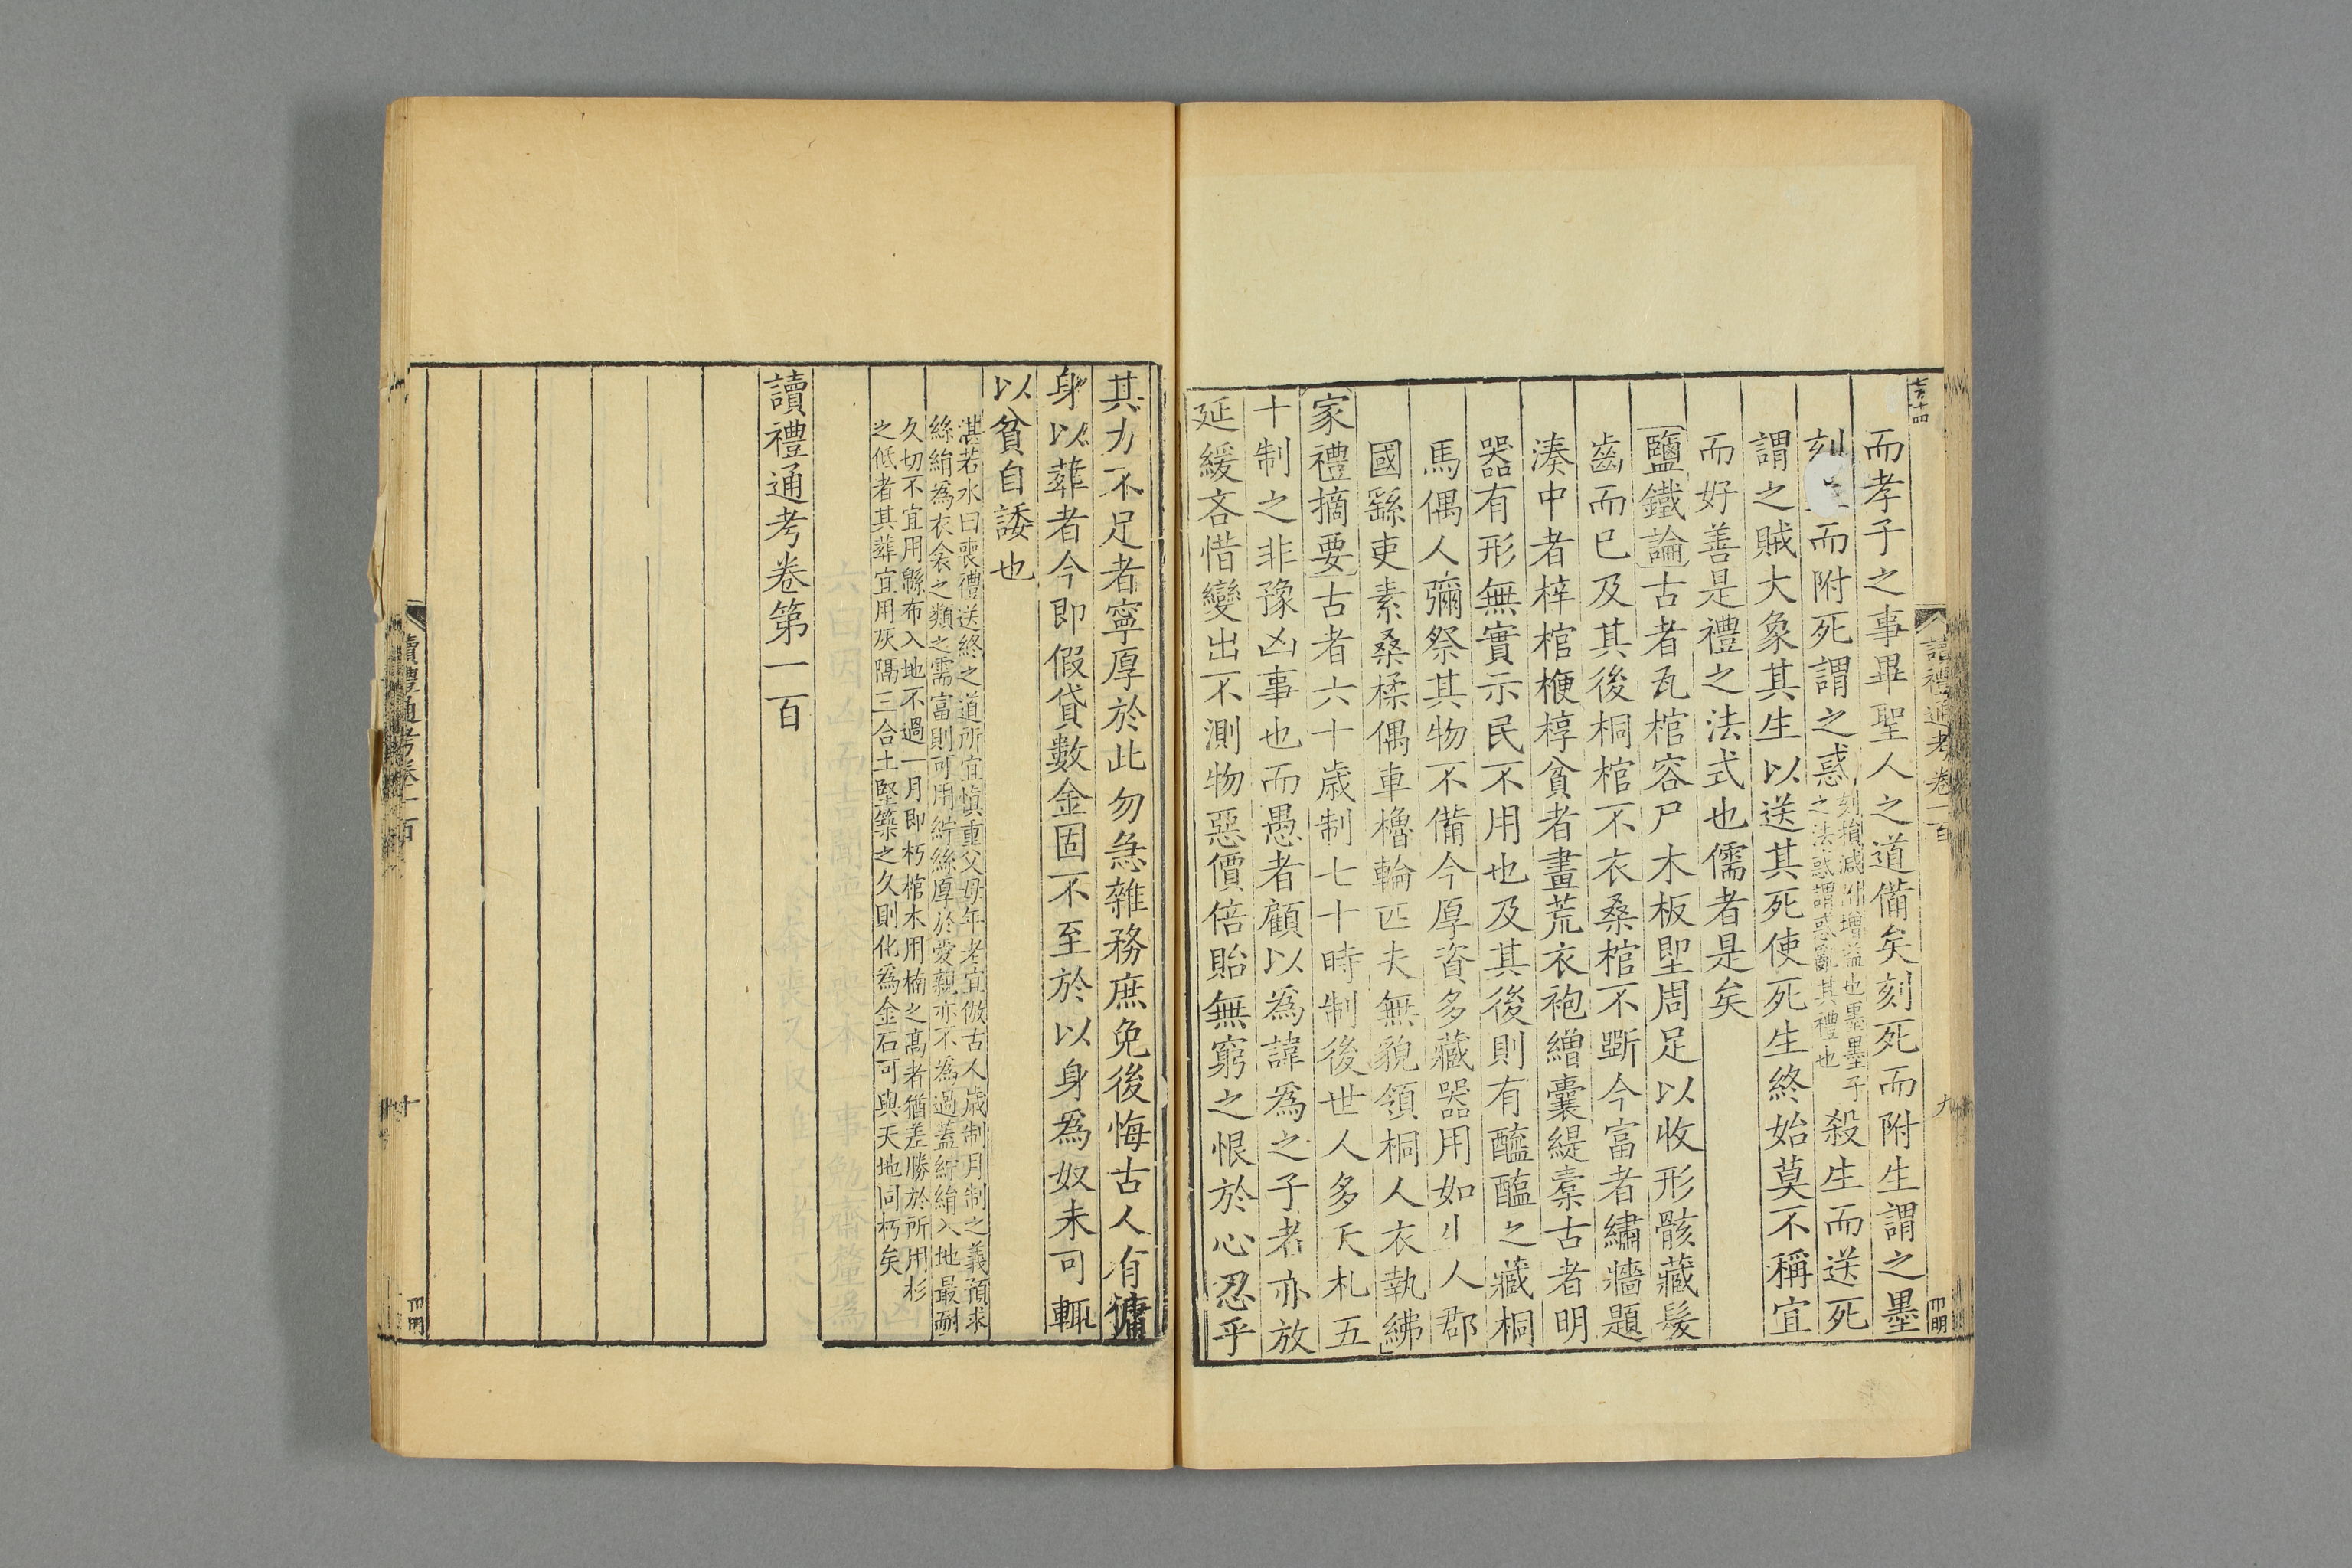 而孝子之事畢聖人之道備矣刻死而附生謂之墨
刻生而附死謂之惑刻損減附增益也墨墨子之法惑謂惑亂其禮也殺生而送死
謂之賊大象其生以送其死使死生終始莫不稱宜
而好善是禮之法式也儒者是矣
鹽鐵論古者瓦棺容尸木板堲周足以收形骸藏髮
齒而已及其後桐棺不衣桑棺不斲今富者繡牆題
湊中者梓棺楩椁貧者畫荒衣袍繒囊緹橐古者明
器有形無實示民不用也及其後則有醯醢之藏桐
馬偶人彌祭其物不備今厚資多藏器用如生人郡
國繇吏素桑楺偶車櫓輪匹夫無貌領桐人衣執綈
家禮摘要古者六十歲制七十時制後世人多夭札五
十制之非豫凶事也而愚者顧以為諱為之子者亦放
延緩吝惜變出不測物惡價倍貽無窮之恨於心忍乎
讀禮通考卷一百
九
其力不足者寧厚於此勿急雜務庶免後悔古人有傭
身以葬者今即假貸數金固不至於以身為奴未可輒
以貧自諉也
湛若水曰喪禮送終之道所宜慎重父母年老宜倣古人歲制月制之義預求
絲絹為衣衾之類之需富則可用紵絲厚於愛親亦不為過蓋紵絹入地最耐
久切不宜用緜布入地不過一月即朽棺木用楠之高者猶差勝於所用杉
之低者其葬宜用灰隔三合土堅築之久則化為金石可與天地同朽矣
讀禮通考卷第一百
讀禮通考卷一百
十